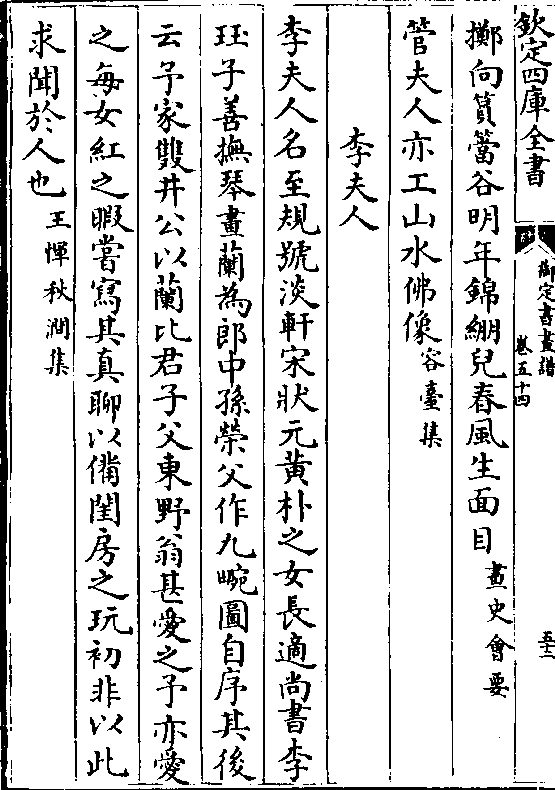 欽定四庫全書
御定書畫譜
卷五十四
五十二
擲向篔簹谷明年錦綳兒春風生面目畫史會要
管夫人亦工山水佛像容臺集
李夫人
李夫人名至規號淡軒宋狀元黃朴之女長適尚書李
珏子善撫琴畫蘭為郎中孫榮父作九畹圖自序其後
云予家雙井公以蘭比君子父東野翁甚愛之予亦愛
之每女紅之暇嘗寫其真聊以備閨房之玩初非以此
求聞於人也王惲秋澗集